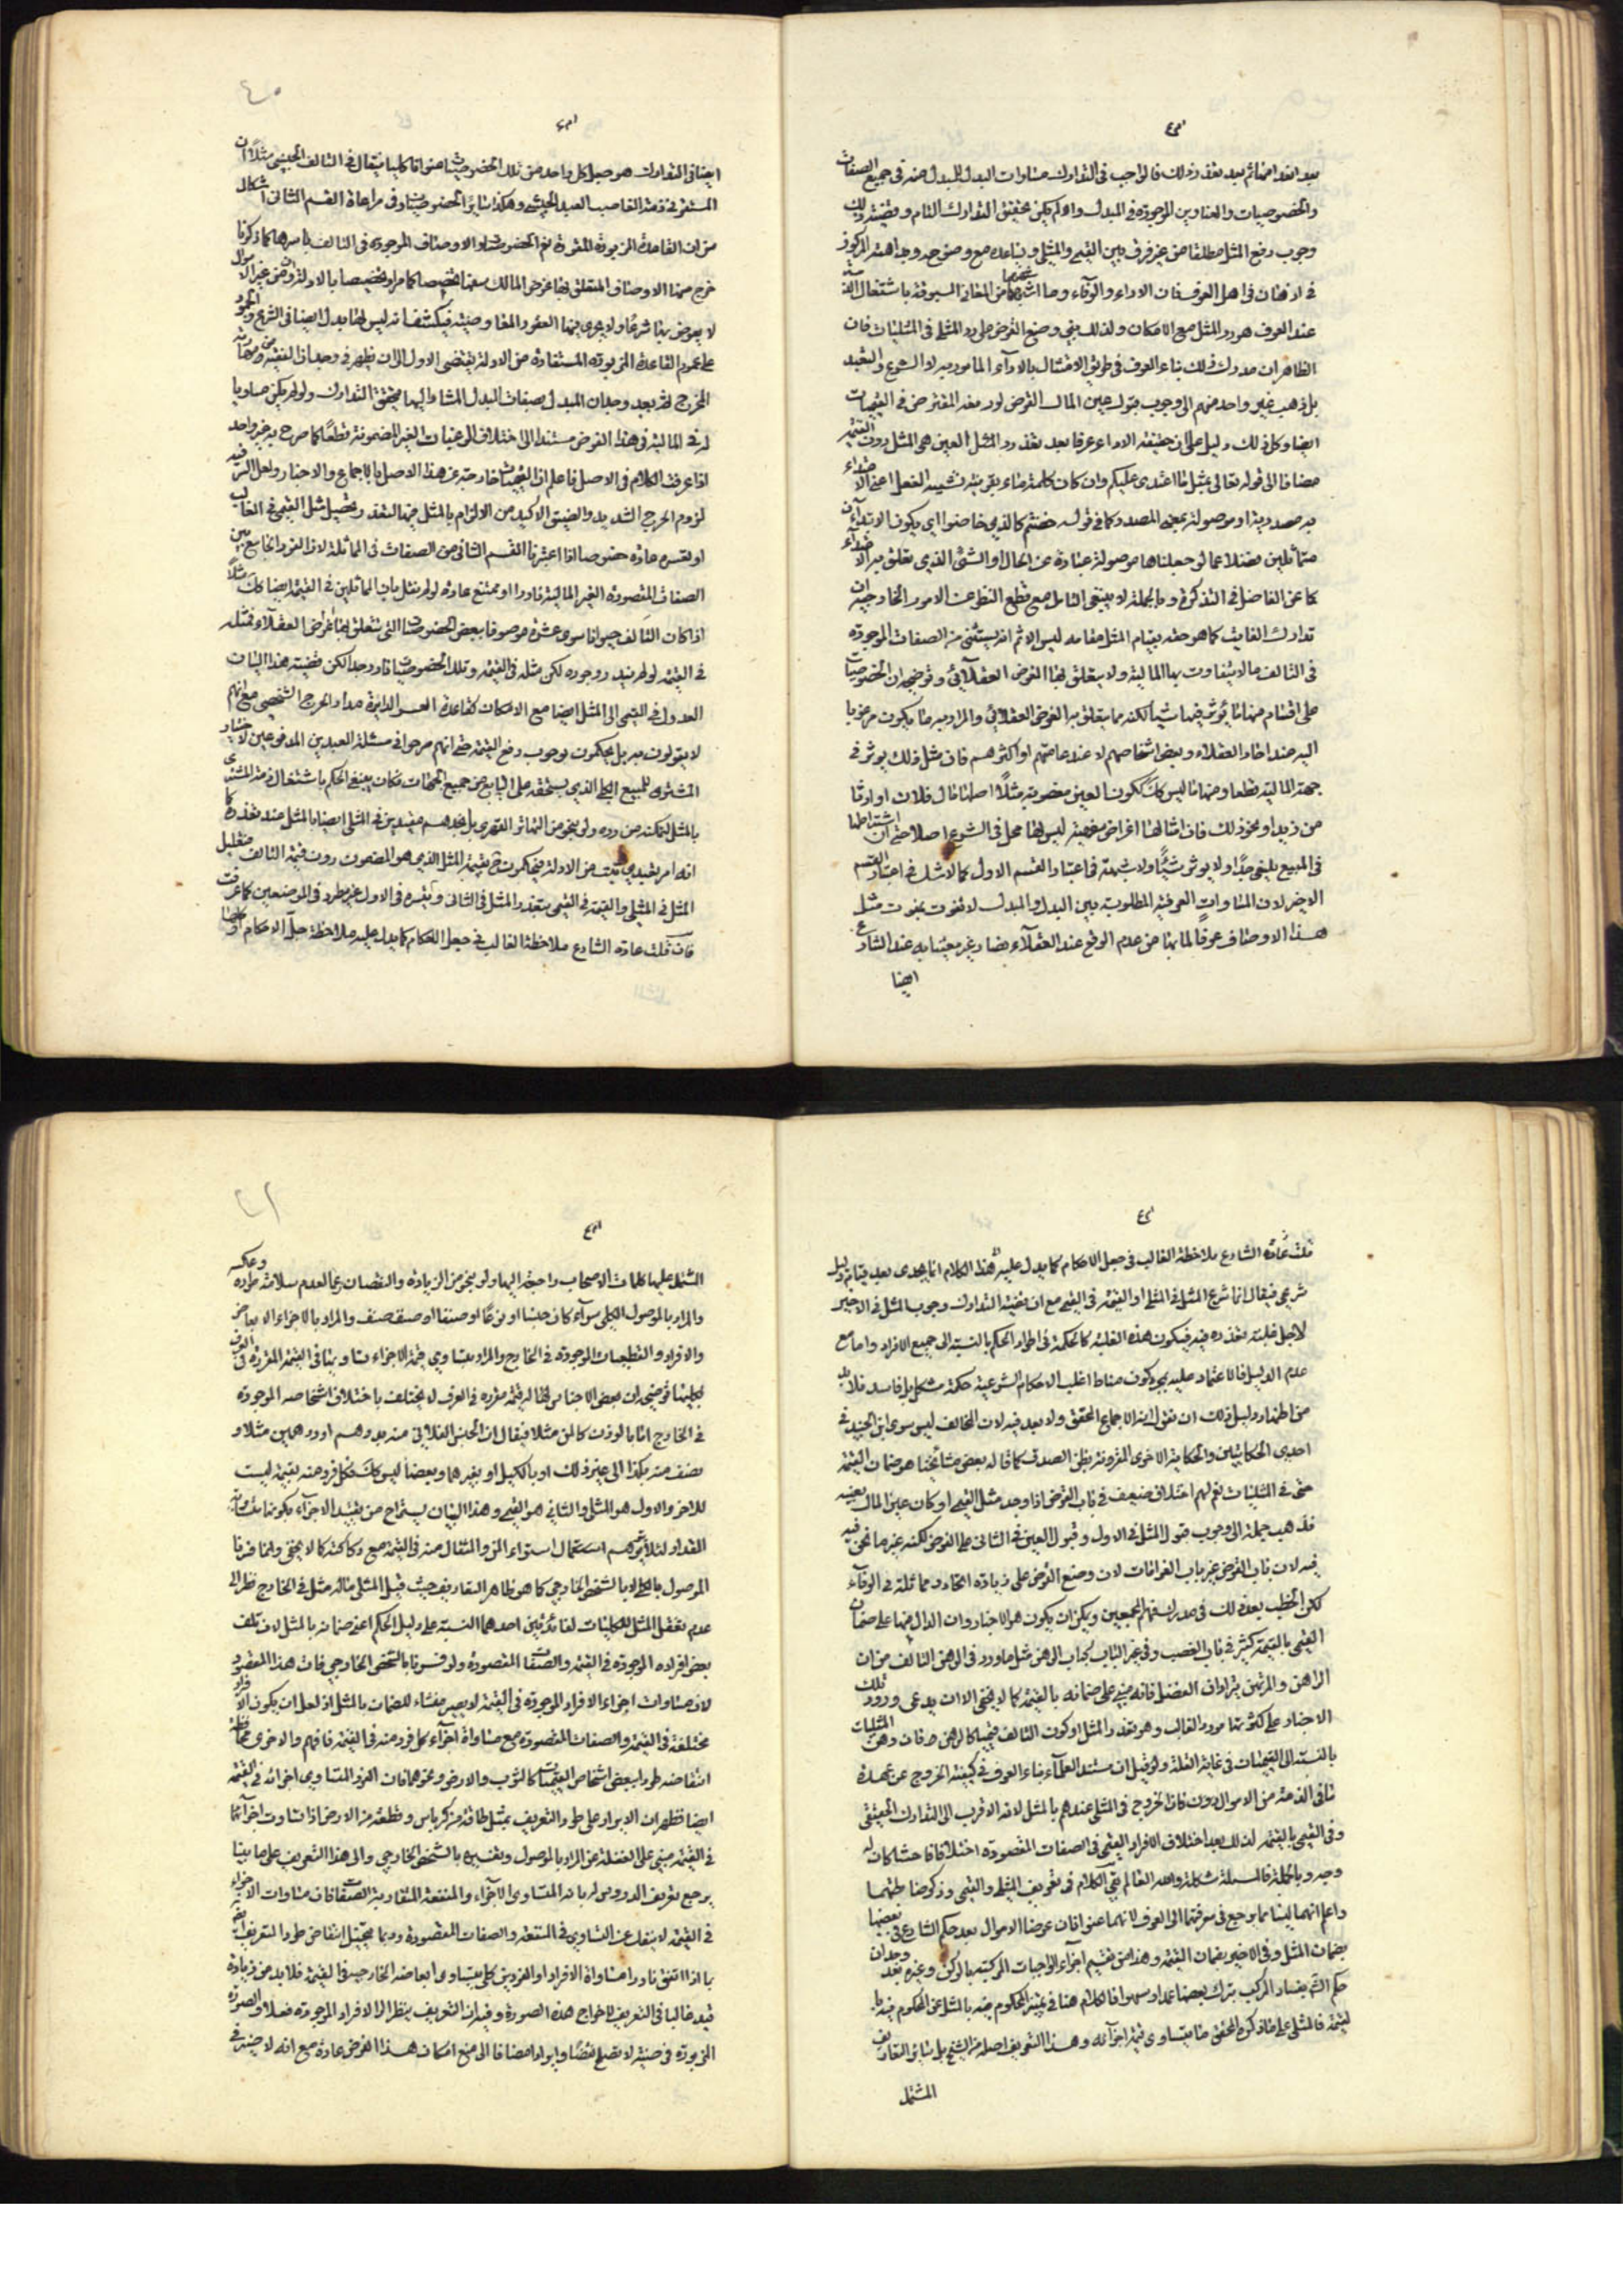 بعد انقدامها ثم بعد تعذر ذلك فالواجب في التدارك مساوات البدل للمبدل منه في جميع الصفات
والخصوصيات والعناوين الموجودة في المبدل والا لم يكن تحقيق التدارك التام وقضية ذلك
وجوب دفع المثل مطلقا من غير فرق بين القيمي والمثلي ويساعده مع وضوحه وبداهته المركوز
في اذهان اهل العرف فان الاداء والوفاء وما اشبههما من المعاني المسبوقة باشتغال الذمة
عند العرف هو رد المثل مع الامكان ولذلك بنى وضع القرض على رد المثل في المثليات فان
الظاهر ان مدرك ذلك بناء العرف في طريق الامتثال بالاداء المامور به لا الشرع والتعبد
بل ذهب غير واحد منهم الى وجوب قبول عين المال القرض لو رده المقترض في القيميات
ايضا وكل ذلك دليل على ان حقيقة الاداء عرفا بعد تعذر رد العين هي المثل دون القيمة
مضافا الى قوله تعالى بمثل ما اعتدى عليكم وان كان كلمة ما بقرينة تشبيه الفعل اعني الاعتداء
به مصدرية او موصولة بمعنى المصدر كما في قوله خضتم كالذي خاضوا اي يكون الاعتداءان
متماثلين فضلا عما لو جعلناها موصولة عبارة عن الحال او الشيء الذي يتعلق به الاعتداء
كما عن الفاضل في التذكرة وبالجملة لا ينبغي التامل مع قطع النظر عن الامور الخارجية ان
تدارك الفايت كما هو حقه بقيام المثل مقامه ليس الا ثم انه يستثنى من الصفات الموجودة
في التالف ما لا يتفاوت بها المالية ولا يتعلق بها الغرض العقلائي وتوضيحه ان الخصوصيات
على اقسام منها ما يؤثر فيها شيأ لكنه مما يتعلق به الغرض العقلائي والمراد به ما يكون مرغوبا
اليه عند احاد العقلاء وبعض اشخاصهم لا عند عامتهم او اكثرهم فان مثل ذلك يوثر في
جهة المالية قطعا ومنها ما ليس كك ككون العين مغصوبة مثلا اصلها مال فلان او ارثا
من زيد او نحو ذلك فان امثال هذه اغراض شخصية ليس لها محل في الشرع اصلا حتى ان اشتراطها
في المبيع يلغى جدا ولا يوثر شيئا ولا شبهة في اعتبار القسم الاول كما لا شك في اعتبار القسم
الاخير لان المساوات العرفية المطلوبة بين البدل والمبدل لا تفوت بفوت مثل
هذا الاوصاف عرفا لما بنا من عدم الوقع عند العقلاء فصار غير معتنا به عند الشارع
ايضا
ايضا في التدارك هو حصل كل واحد من تلك الخصوصيات عنوانا كليا فيقال في التالف الحبشي مثلا ان
المستقر في ذمة الغاصب العبد الحبشي وهكذا سائر الخصوصيات وفي مراعاة القسم الثاني اشكال
من ان القاعدة المزبورة المقررة نعم الخصوصيات والاوصاف الموجودة في التالف باسرها كما ذكرنا
لا يعوض بها شرعا ولا يجري فيها العقود المعاوضية فيكشف انه ليس لها بدل ايضا في الشرع والجمود
على عموم القاعدة المزبورة المستفادة من الادلة يقتضي الاول الا ان يظهر في وجدان الفقيه
المخرج له بعد وجدان المبدل بصفات البدل المشار اليها يتحقق التدارك ولو لم يكن مساويا
له في المالية في هذا الفرض مستندا الى اختلاف الرغبات الغير المضمونة قطعا كما صرح به غير واحد
اذا عرفت الكلام في الاصل فاعلم ان القيميات خارجة عن هذا الاصل بالاجماع والاخبار ولعل السر فيه
لزوم الحرج الشديد والضيق الاكيد من الالزام بالمثل فيها لتعذر تحصيل مثل القيمي في الغالب
او لعسره عادة خصوصا اذا اعتبرنا القسم الثاني من الصفات في المماثلة لان الفرد الجامع بين
الصفات المقصودة الغير المالية نادرا او ممتنع عادة ولو لم نقل بان المماثلين في القيمة ايضا كك مثلا
اذا كان التالف حيوانا سوى عشرة موصوفا ببعض الخصوصيات التي تتعلق بها اغراض العقلاء فمثله
في القيمة لو لم يندر وجوده لكن مثله في القيمة وتلك الخصوصيات نادر جدا لكن قضية هذا البيان
العدول في القيمي الى المثل ايضا مع الامكان كقاعدة العسر الدائرة مدار الحرج الشخصي مع انهم
لا يقولون به بل يحكمون بوجوب دفع القيمة حتى انهم صرحوا في مسئلة العبدين المدفوعين لاختيار
المشتري للمبيع الكلي الذي يستحقه على البايع من جميع الجهات فكان ينبغي الحكم باشتغال ذمة المشتري
انه امر تعبدي ثبت من الادلة فيحكمون بقيمة المثل الذي هو المضمون دون قيمة التالف
المثل في المثلي والقيمة في القيمي بتعذر المثل في الثاني وتيسره في الاول غير مطرد في الموضعين كما عرفت
فان قلت عادة الشارع ملاحظة الغالب في جعل الاحكام كما يدل عليه ملاحظة جل الاحكام
قلت عادة الشارع ملاحظة الغالب في جعل الاحكام كما يدل عليه هذا الكلام انما يجدى بعد قيام دليل
شرعي فيقال انما شرع المثل في المثلي او القيمة في القيمي مع ان قضية التدارك وجوب المثل في الاخير
لاجل غلبة تعذره فيه فيكون هذه الغلبة كالحكمة في اطراد الحكم بالنسبة الى جميع الافراد واما مع
عدم الدليل فالاعتماد عليه بمجرد كون مناط اغلب الاحكام الشرعية حكمة مشكل بل فاسد فلا بد
من اظهار دليل ذلك ان نقول انه الاجماع المحقق ولا بعد فيه لان المخالف ليس سوى ابن الجنيد في
احدى الحكايتين والحكاية الاخرى المقرونة بظن الصدق كما قاله بعض مشائخنا هو ضمان القيمة
حتى في المثليات نعم لهم اختلاف ضعيف في باب القرض اذا وجد مثل القيمي او كان عين المال بعينه
فذهب جملة الى وجوب قبول المثل في الاول وقبول العين في الثاني على المقرض لكنه غير ما نحن فيه
فيه لان باب القرض غير باب الغرامات لان وضع القرض على زيادة اتحاد ومماثلة في الوفاء
لكن الخطب بعد ذلك في مدرك فهم المجمعين ويمكن ان يكون هو الاخبار وان الدال منها على ضمان
القيمي بالقيمة كثير في باب الغصب وفي غير الباب كباب الرهن مثل ما ورد في الرهن التالف من ان
الراهن والمرتهن يترادان الفضل فانه مبني على ضمانه بالقيمة كما لا يخفى الا ان يدعى ورود تلك
الاخبار على كثرتها مورد الغالب وهو تعذر المثل او كون التالف قيميا كالرهن فان رهن المثليات
بالنسبة الى القيميات في غاية القلة ولو قيل ان مستند العلماء بناء العرف في كيفية الخروج عن عهدة
ما في الذمة من الاموال دون كان الخروج في المثلي عندهم بالمثل لانه الاقرب الى التدارك الحقيقي
وفي القيمي بالقيمة لذلك بعد اختلاف الافراد القيمي في الصفات المقصودة اختلافا فاحشا كان له
وجه وبالجملة فالمسئلة مشكلة والله العالم بقي الكلام في تعريف المثلي والقيمي وذكر ضابطهما
واعلم انهما ليسا مما يرجع في معرفتهما الى العرف لانهما عنوانان عرضا الاموال بعد حكم الشارع في بعضها
بضمان المثل وفي الاخير بضمان القيمة وهذا من تقسيم اجزاء الواجبات المركبة بالركن وغيره بعد وجدان
حكم الشرع بفساد المركب بترك بعضها عمدا وسهوا فالكلام هنا في تميز المحكوم فيه بالمثل عن المحكوم فيه با
لقيمة فالمثلي على ما ذكره المحقق ما يتساوى قيمة اجزائه وهذا التعريف اصله من الشيخ بل سائر التعاريف
المشتمل
المشتمل عليها كلمات الاصحاب راجعة اليها ولو بنحو من الزيادة والنقصان رعما لعدم سلامة طرده وعكسه
والمراد بالموصول الكلي سواء كان جنسا او نوعا او صنفا او صنف صنف والمراد بالاجزاء الابعاض
والافراد والقطعات الموجودة في الخارج والمراد بتساوي قيمة الاجزاء تساويها في القيمة المقررة في العرف
لكليتها توضيحه ان بعض الاجناس لها قيمة مقررة في العرف لا يختلف باختلاف اشخاصه الموجودة
في الخارج اما بالوزن كالمن مثلا فيقال ان الجنس الفلاني منه بدرهم او درهمين مثلا و
نصف منه بكذا الى غير ذلك او بالكيل او بغيرهما وبعضها ليس كك فكل فرد منه بقيمة ليست
للاخر والاول هو المثلي والثاني هو القيمي وهذا البيان يستراح من تقييد الاجزاء بكونها متساوية
المقدار لئلا يتوهم استعمال استواء المن والمثقال منه في القيمة مع ركاكته كما لا يخفى وانما فسرنا
الموصول بالكلي لا بالشخص الخارجي كما هو ظاهر التعاريف حيث قيل المثلي ماله مثل في الخارج نظرا الى
عدم تعقل المثل للكليات لفائدتين احدهما النسبة على دليل الحكم اعني ضمانه بالمثل لان تلف
بعض افراده الموجودة في القيمة والصفات المقصودة ولو فسرنا بالشخص الخارجي فات هذا المقصود
لان مساوات اجزاء الافراد الموجودة في القيمة لا يصير منشاء للضمان بالمثل اذ لعل ان يكون الافراد
مختلفة في القيمة والصفات المقصودة مع مساواة اجزاء كل فرد منه في القيمة فافهم والاخرى
انتقاضه طردا ببعض اشخاص القيميات كالثوب والارض ونحوهما فان الفرد المتساوي اجزائه في القيمة
ايضا فظهر ان الايراد على طرد التعريف بمثل طاقة من كرباس وقطعة من الارض اذا تساوت اجزائها
في القيمة مبني على الغفلة عن المراد بالموصول وتفسيره بالشخص الخارجي والى هذا التعريف على ما بينا
يرجع تعريف الدروس له بانه المتساوي الاجزاء والمنفعة المتقاربة الصفات فان مساوات الاجزاء
في القيمة لا ينفك عن التساوي في المنفعة والصفات المقصودة وربما يتخيل انتقاض طرد التعريف ايضا
بما اذا اتفق نادرا مساواة الافراد او الفردين كلي يتساوى ابعاضه الخارجية في القيمة فلا بد من زيادة
قيد غالبا في التعريف لاخراج هذه الصورة وفيه ان التعريف ينظر الى الافراد الموجودة فعلا والصورة
المزبورة فرضية لا تصلح نقضا وايرادا مضافا الى منع امكان هذا الفرض عادة مع انه لا ضير في